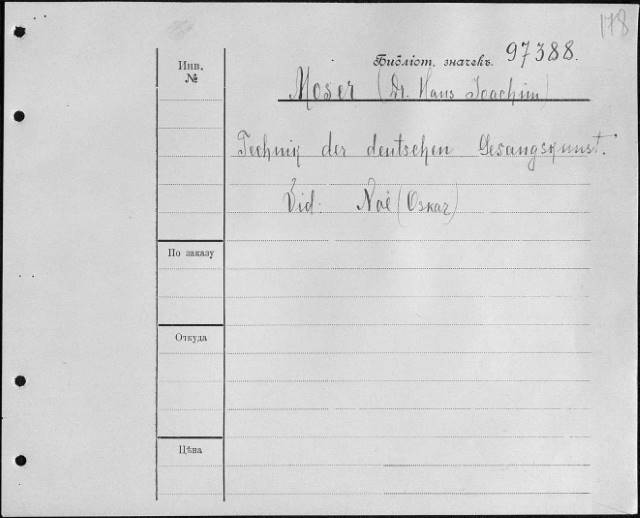 178
Библіот. значекъ. 97388.
Инв.
№
Moser (Dr. Hans Joachim)
Technik der deutschen Gesangskunst.
Vid: Noë (Oskar)
По заказу
Откуда
Цѣна